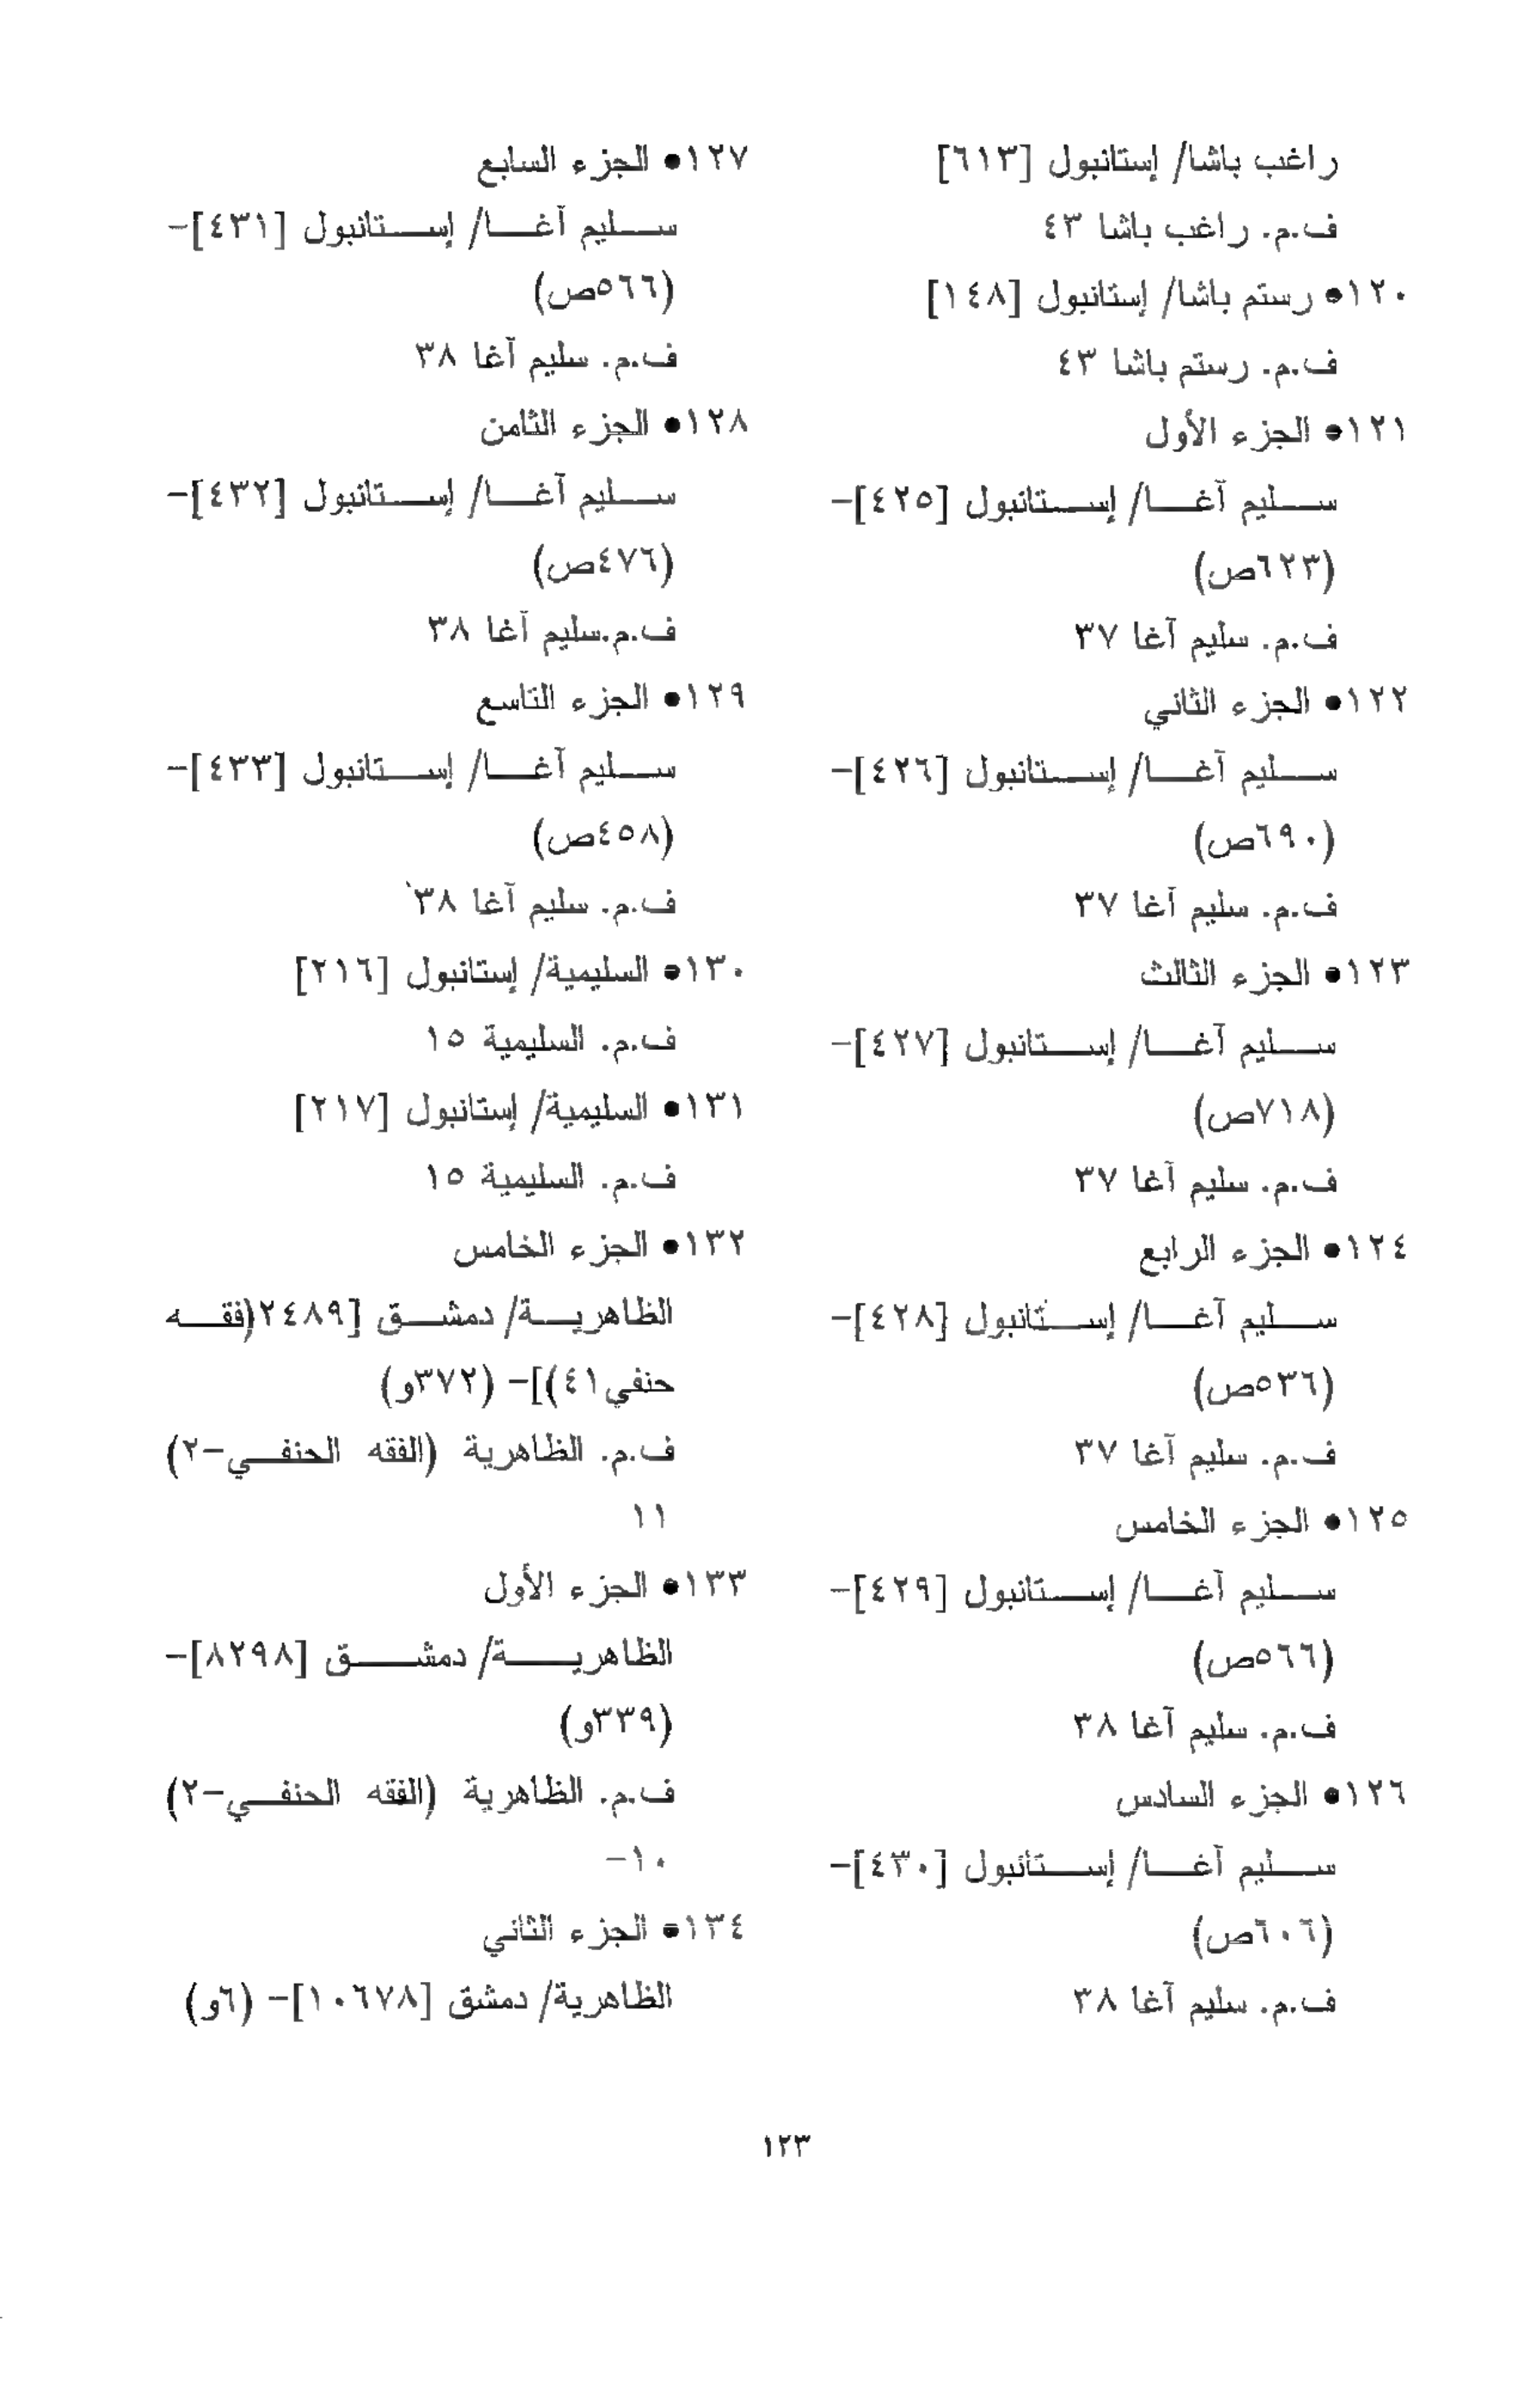 راغب باشا/ إستانبول [٦١٣]
ف.م. راغب باشا ٤٣
١٢٠● رستم باشا/ إستانبول [١٤٨]
ف.م. رستم باشا ٤٣
١٢١● الجزء الأول
سليم آغا/ إستانبول [٤٢٥]-
(٦٢٣ص)
ف.م. سليم آغا ٣٧
١٢٢● الجزء الثاني
سليم آغا/ إستانبول [٤٢٦]-
(٦٩٠ص)
ف.م. سليم آغا ٣٧
١٢٣● الجزء الثالث
سليم آغا/ إستانبول [٤٢٧]-
(٧١٨ص)
ف.م. سليم آغا ٣٧
١٢٤● الجزء الرابع
سليم آغا/ إستانبول [٤٢٨]-
(٥٣٦ص)
ف.م. سليم آغا ٣٧
١٢٥● الجزء الخامس
سليم آغا/ إستانبول [٤٢٩]-
(٥٦٦ص)
ف.م. سليم آغا ٣٨
١٢٦● الجزء السادس
سليم آغا/ إستانبول [٤٣٠]-
(٦٠٦ص)
ف.م. سليم آغا ٣٨
١٢٧● الجزء السابع
سليم آغا/ إستانبول [٤٣١]-
(٥٦٦ص)
ف.م. سليم آغا ٣٨
١٢٨● الجزء الثامن
سليم آغا/ إستانبول [٤٣٢]-
(٤٧٦ص)
ف.م.سليم آغا ٣٨
١٢٩● الجزء التاسع
سليم آغا/ إستانبول [٤٣٣]-
(٤٥٨ص)
ف.م. سليم آغا ٣٨
١٣٠● السليمية/ إستانبول [٢١٦]
ف.م. السليمية ١٥
١٣١● السليمية/ إستانبول [٢١٧]
ف.م. السليمية ١٥
١٣٢● الجزء الخامس
الظاهرية/ دمشق [٢٤٨٩(فقه
حنفي٤١)]- (٣٧٢و)
ف.م. الظاهرية (الفقه الحنفي-٢)
١١
١٣٣● الجزء الأول
الظاهرية/ دمشق [٨٢٩٨]-
(٣٣٩و)
ف.م. الظاهرية (الفقه الحنفي-٢)
١٠-
١٣٤● الجزء الثاني
الظاهرية/ دمشق [١٠٦٧٨]- (٦و)
١٢٣